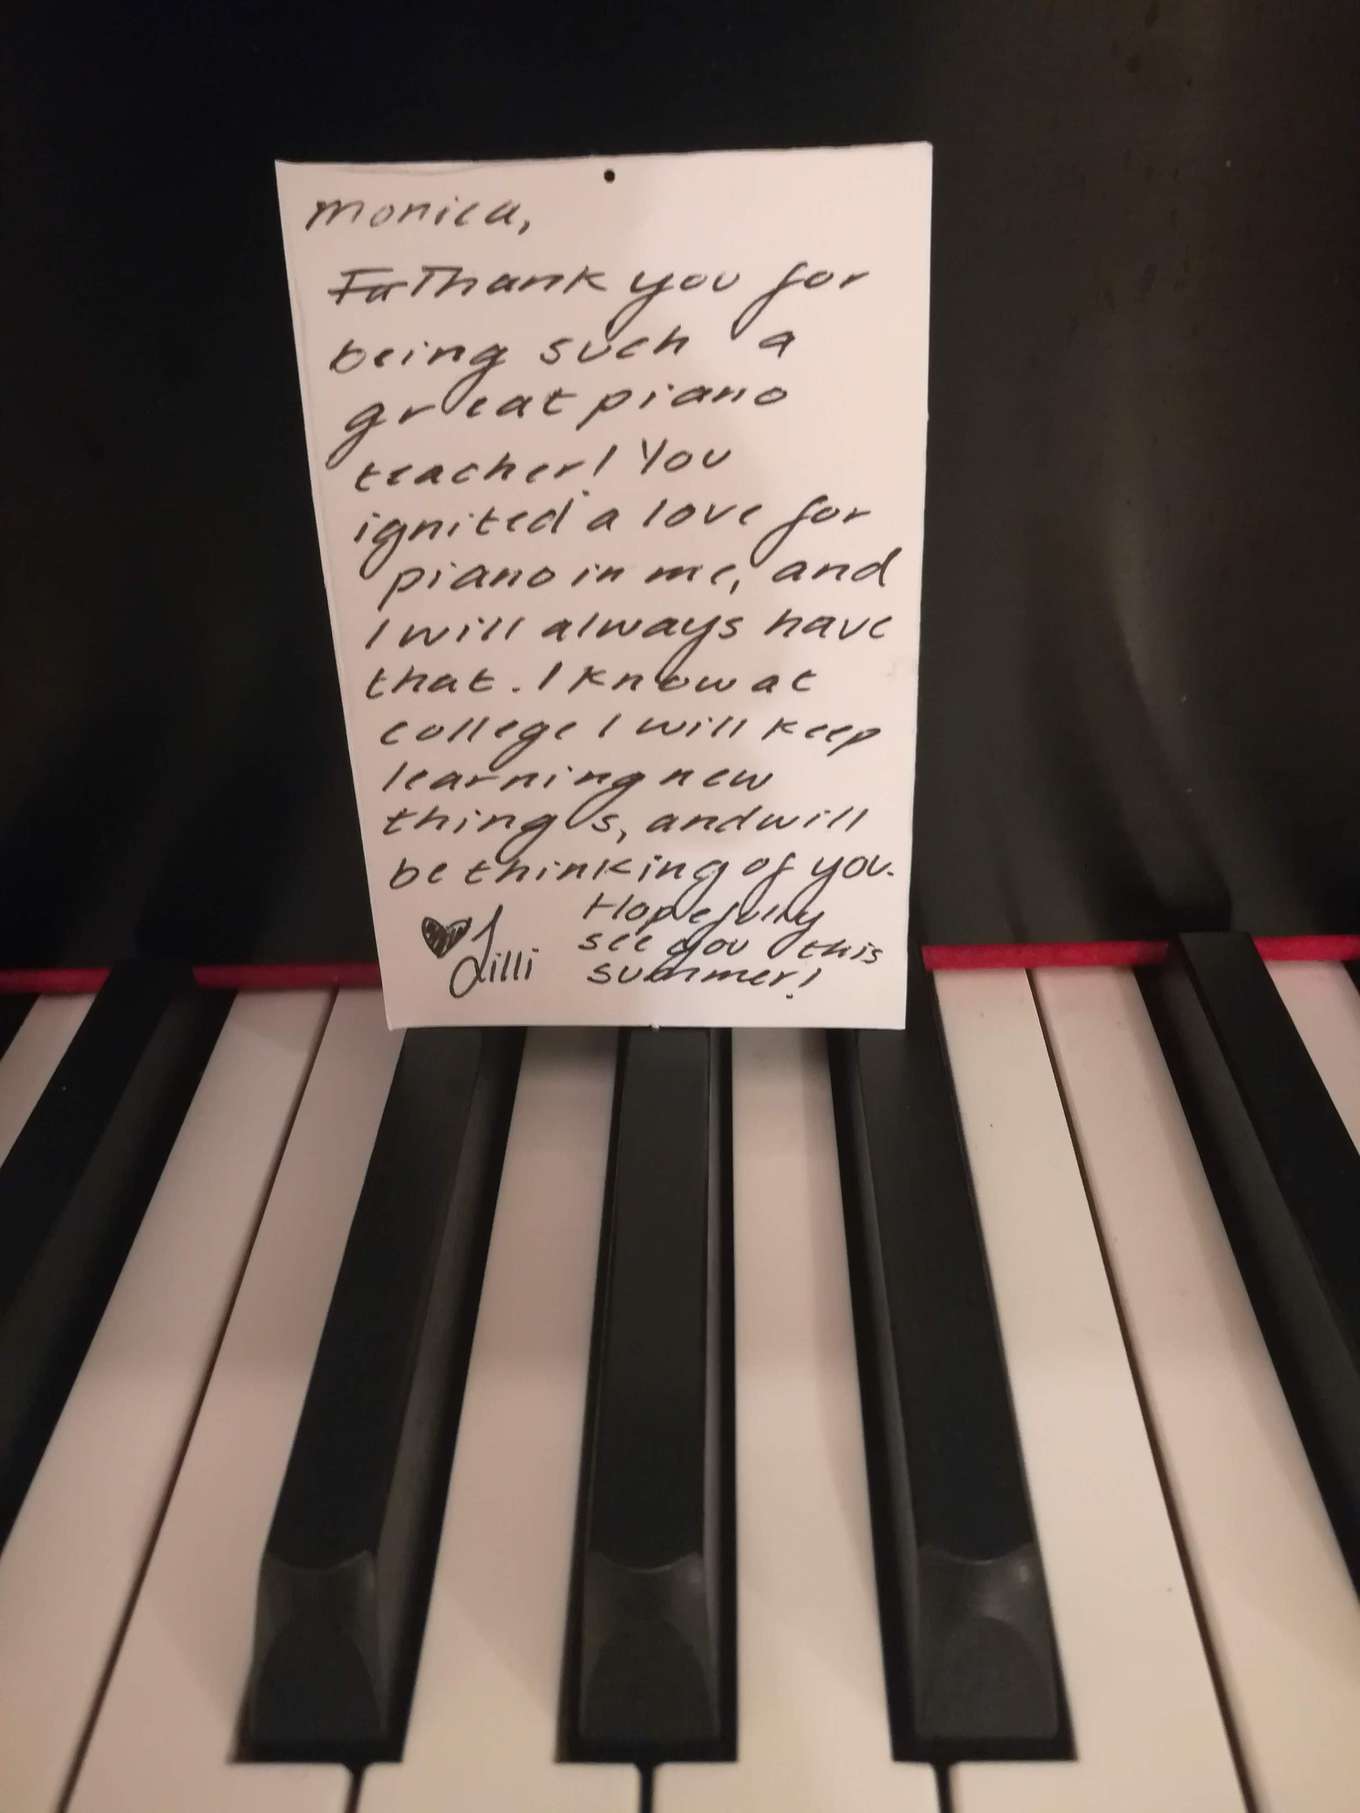 Monica,
Fa Thank you for
being such a
great piano
teacher! You
ignited a love for
piano in me, and
I will always have
that. I know at
college I will keep
learning new
things, and will
be thinking of you.
Hopefully
see you this
summer!
♥Lilli